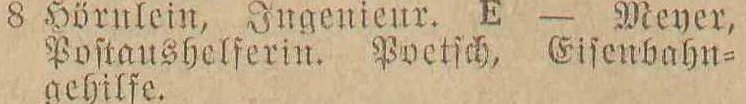 8 Hörnlein, Ingenieur. E — Meyer,
Postaushelferin. Poetsch, Eisenbahn-
gehilfe.